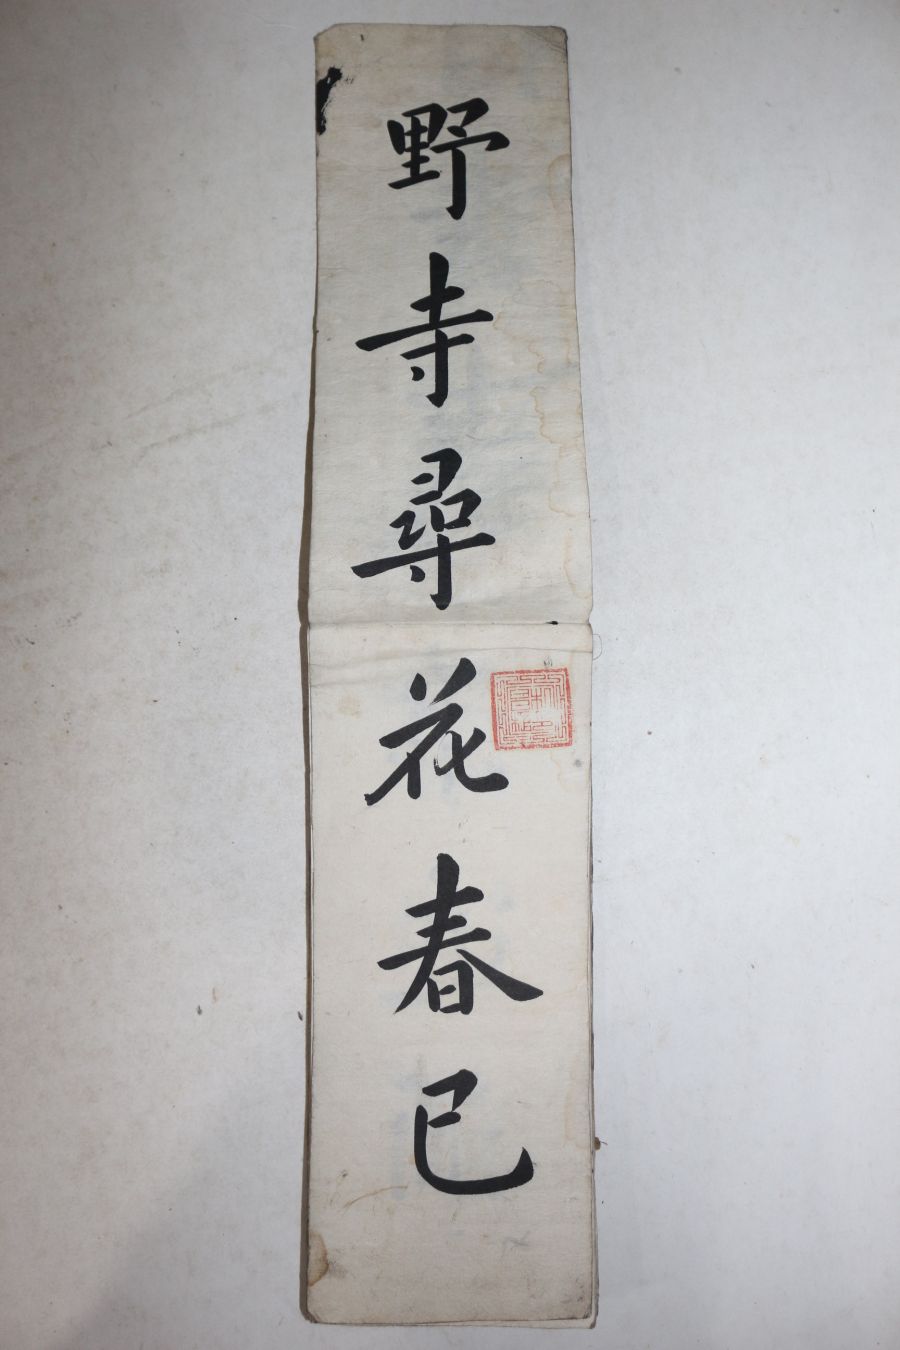 野寺尋花春已